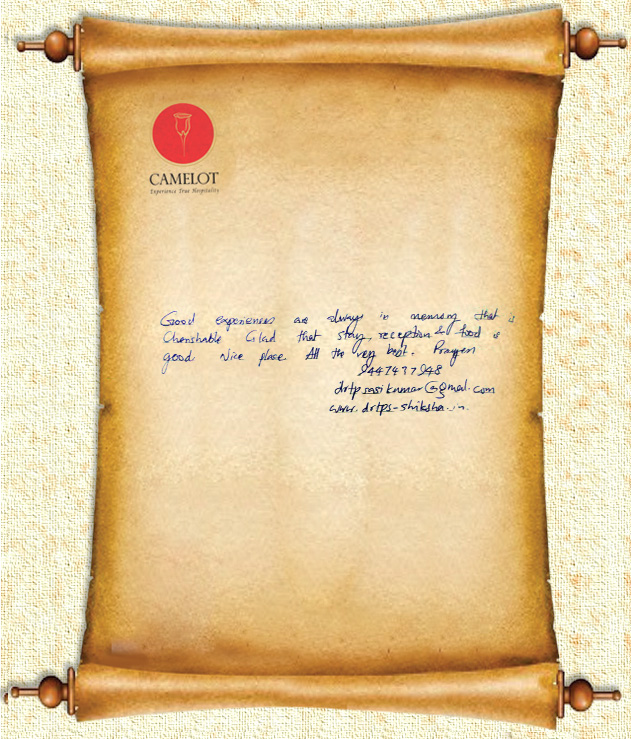 CAMELOT
Experience True Hospitality
Good experiences are always in memory that is
Cherishable Glad that stay, reception & food is
good Nice place. All the very best. Prayers
9447477948
drtpsasikumar@gmail.com
www.drtps-shiksha.in